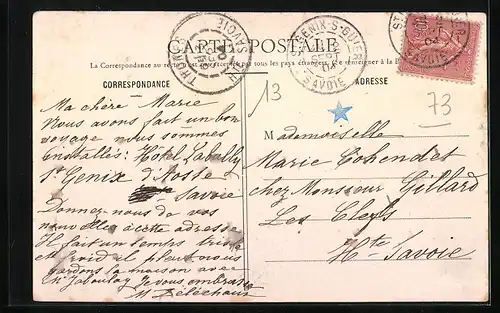 CARTE POSTALE
La Correspondance au recto n'est pas acceptée par tous les pays étrangers.
CORRESPONDANCE
ADRESSE
THONON
Hte SAVOIE
ST GENIX-S-GUIERS
SAVOIE
SAVOIE
13
73
Ma chère Marie
Nous avons fait un bon
voyage nous sommes
installés: Hotel Labully
St Genix d'Aoste
Savoie
Donnez-nous de vos
nouvelles à cette adresse
Il fait un temps triste
et froid il pleut nous
gardons la maison avec
Jaboulay Je vous embrasse
M
Mademoiselle
Marie Cohendet
chez Monsieur Gillard
Les Clefs
Hte Savoie